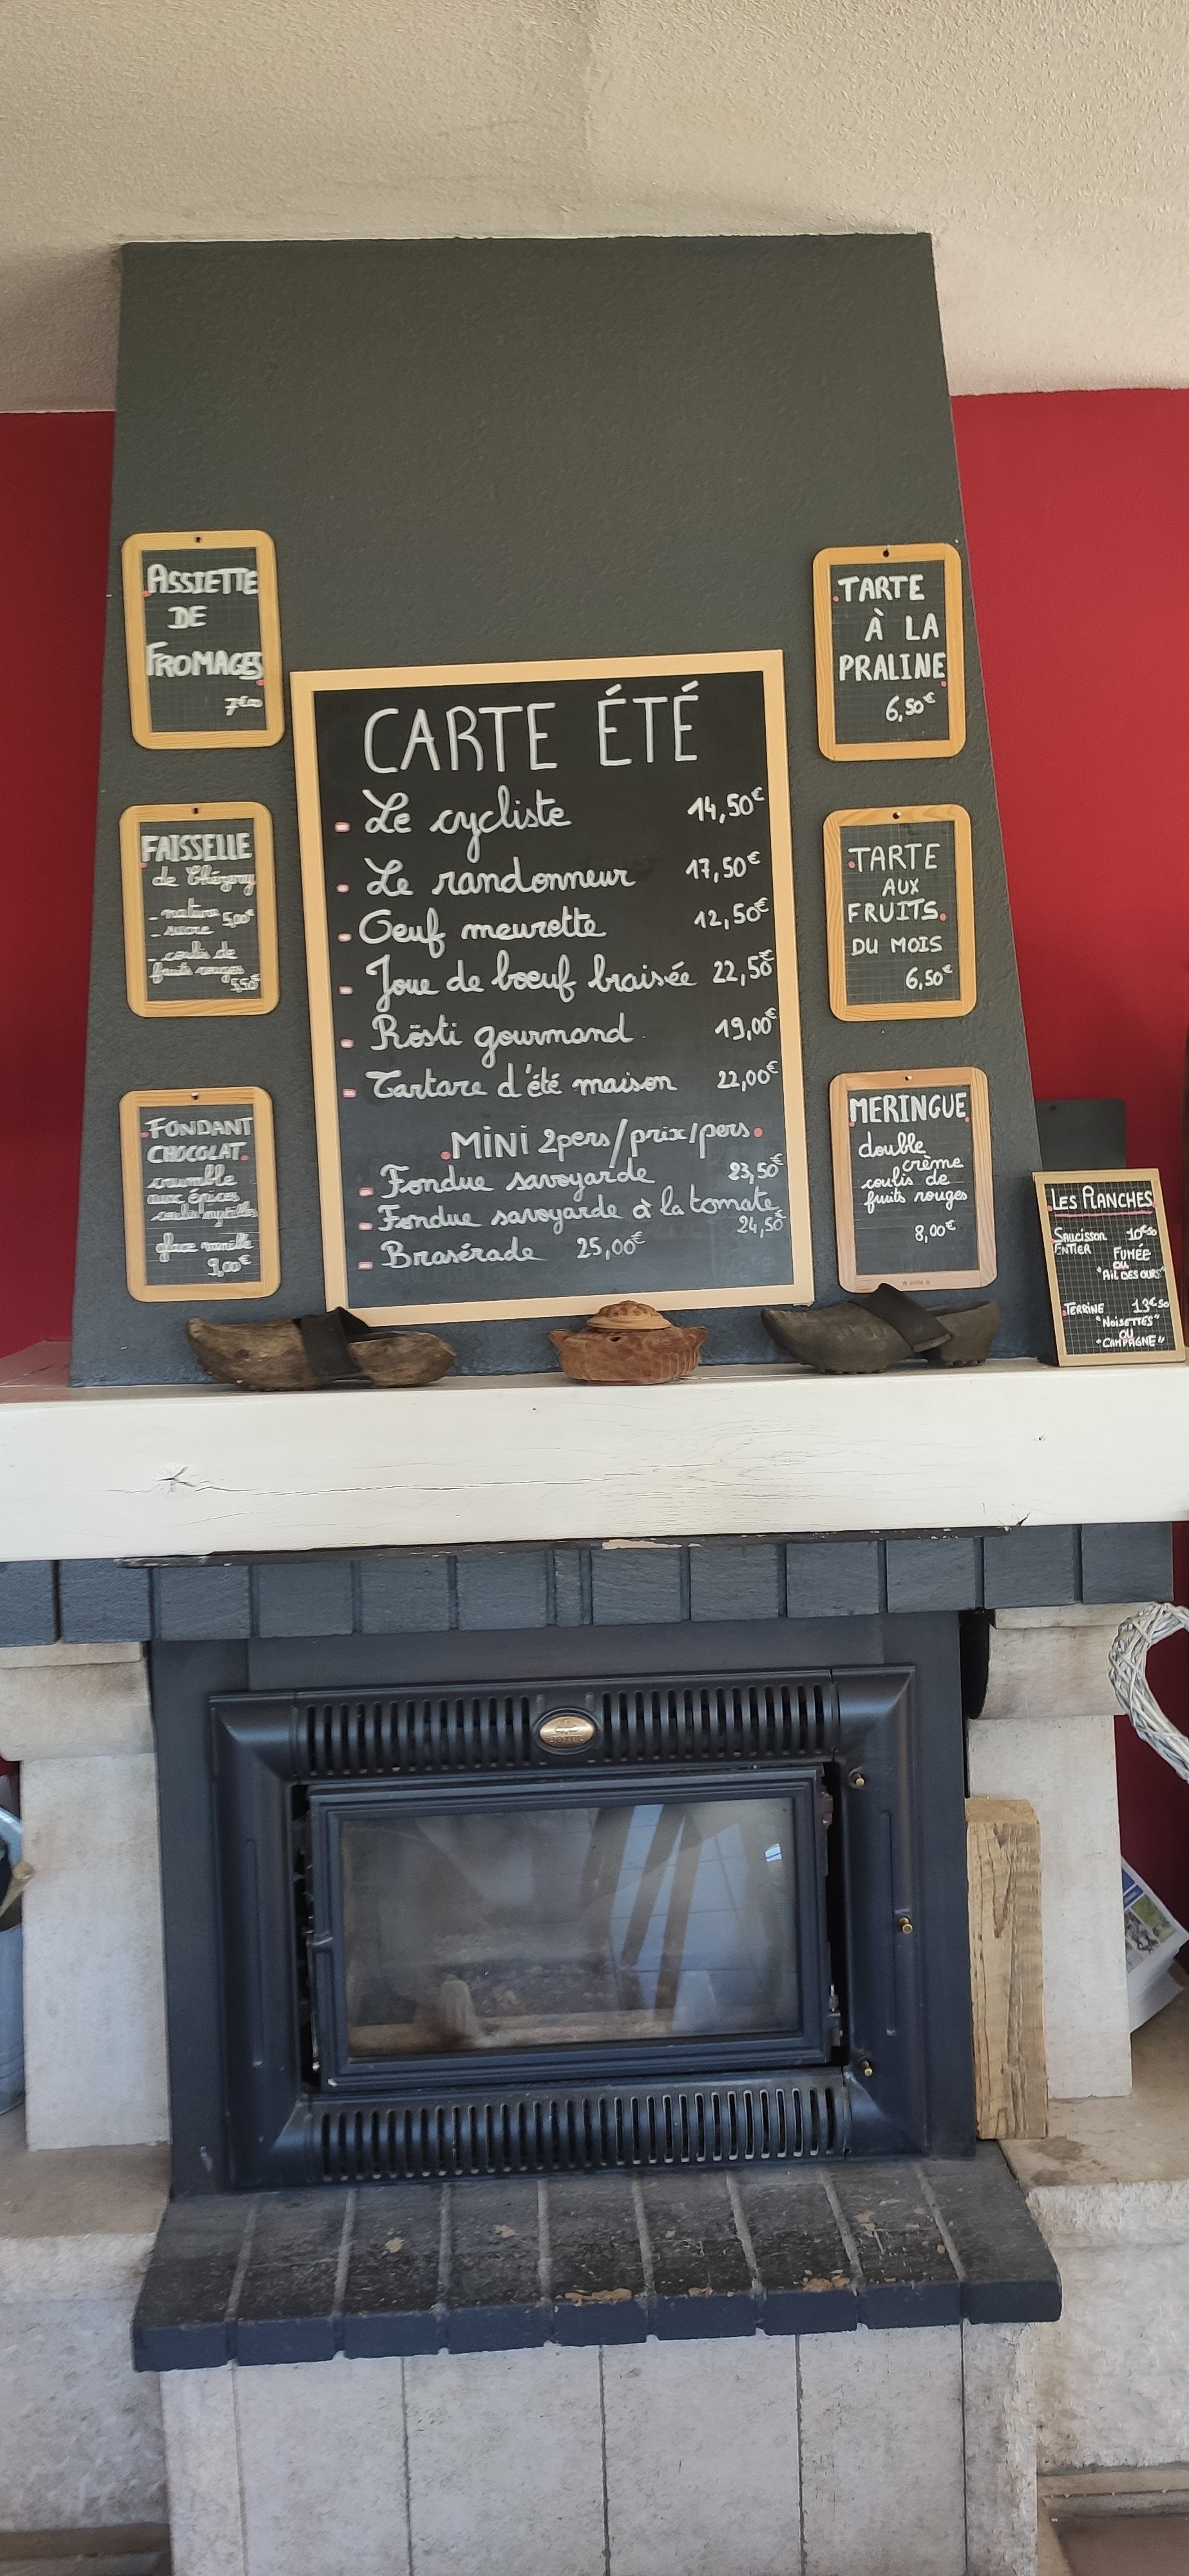 ASSIETTE
DE
FROMAGES
7€00
FAISSELLE
de Chézery
- nature
- sucre 5,00€
- coulis de
fruits rouges
5,50€
FONDANT
CHOCOLAT
crumble
aux épices
coulis myrtilles
glace vanille
9,00€
CARTE ÉTÉ
- Le cycliste 14,50€
- Le randonneur 17,50€
- Oeuf meurette 12,50€
- Joue de boeuf braisée 22,50€
- Rösti gourmand 19,00€
- Tartare d'été maison 22,00€
.MINI 2pers/prix/pers.
- Fondue savoyarde 23,50€
- Fondue savoyarde à la tomate
24,50€
- Brasérade 25,00€
.TARTE
À LA
PRALINE.
6,50€
.TARTE
AUX
FRUITS.
DU MOIS
6,50€
MERINGUE
double
crème
coulis de
fruits rouges
8,00€
LES PLANCHES
SAUCISSON 10€50
ENTIER FUMÉE
OU
"AIL DES OURS"
.TERRINE 13€50
"NOISETTES"
OU
"CAMPAGNE"